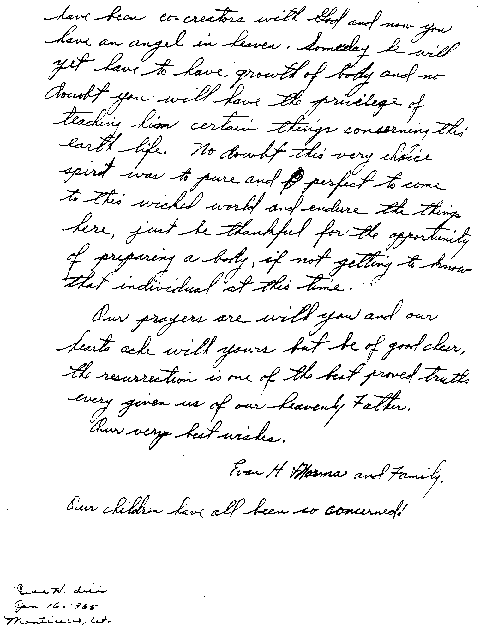 have been co-creators with God and now you
have an angel in heaven. Someday he will
yet have to have growth of body and no
doubt you will have the privilege of
teaching him certain things concerning this
earth life. No doubt this very choice
spirit was to pure and perfect to come
to this wicked world and endure the things
here, just be thankful for the opportunity
of preparing a body, if not getting to know
that individual at this time.
Our prayers are with you and our
hearts ache with yours but be of good cheer,
the resurrection is one of the best proved truths
every given us of our heavenly Father.
Our very best wishes.
H and Family.
Our children have all been so concerned!
H.
Jan 16.